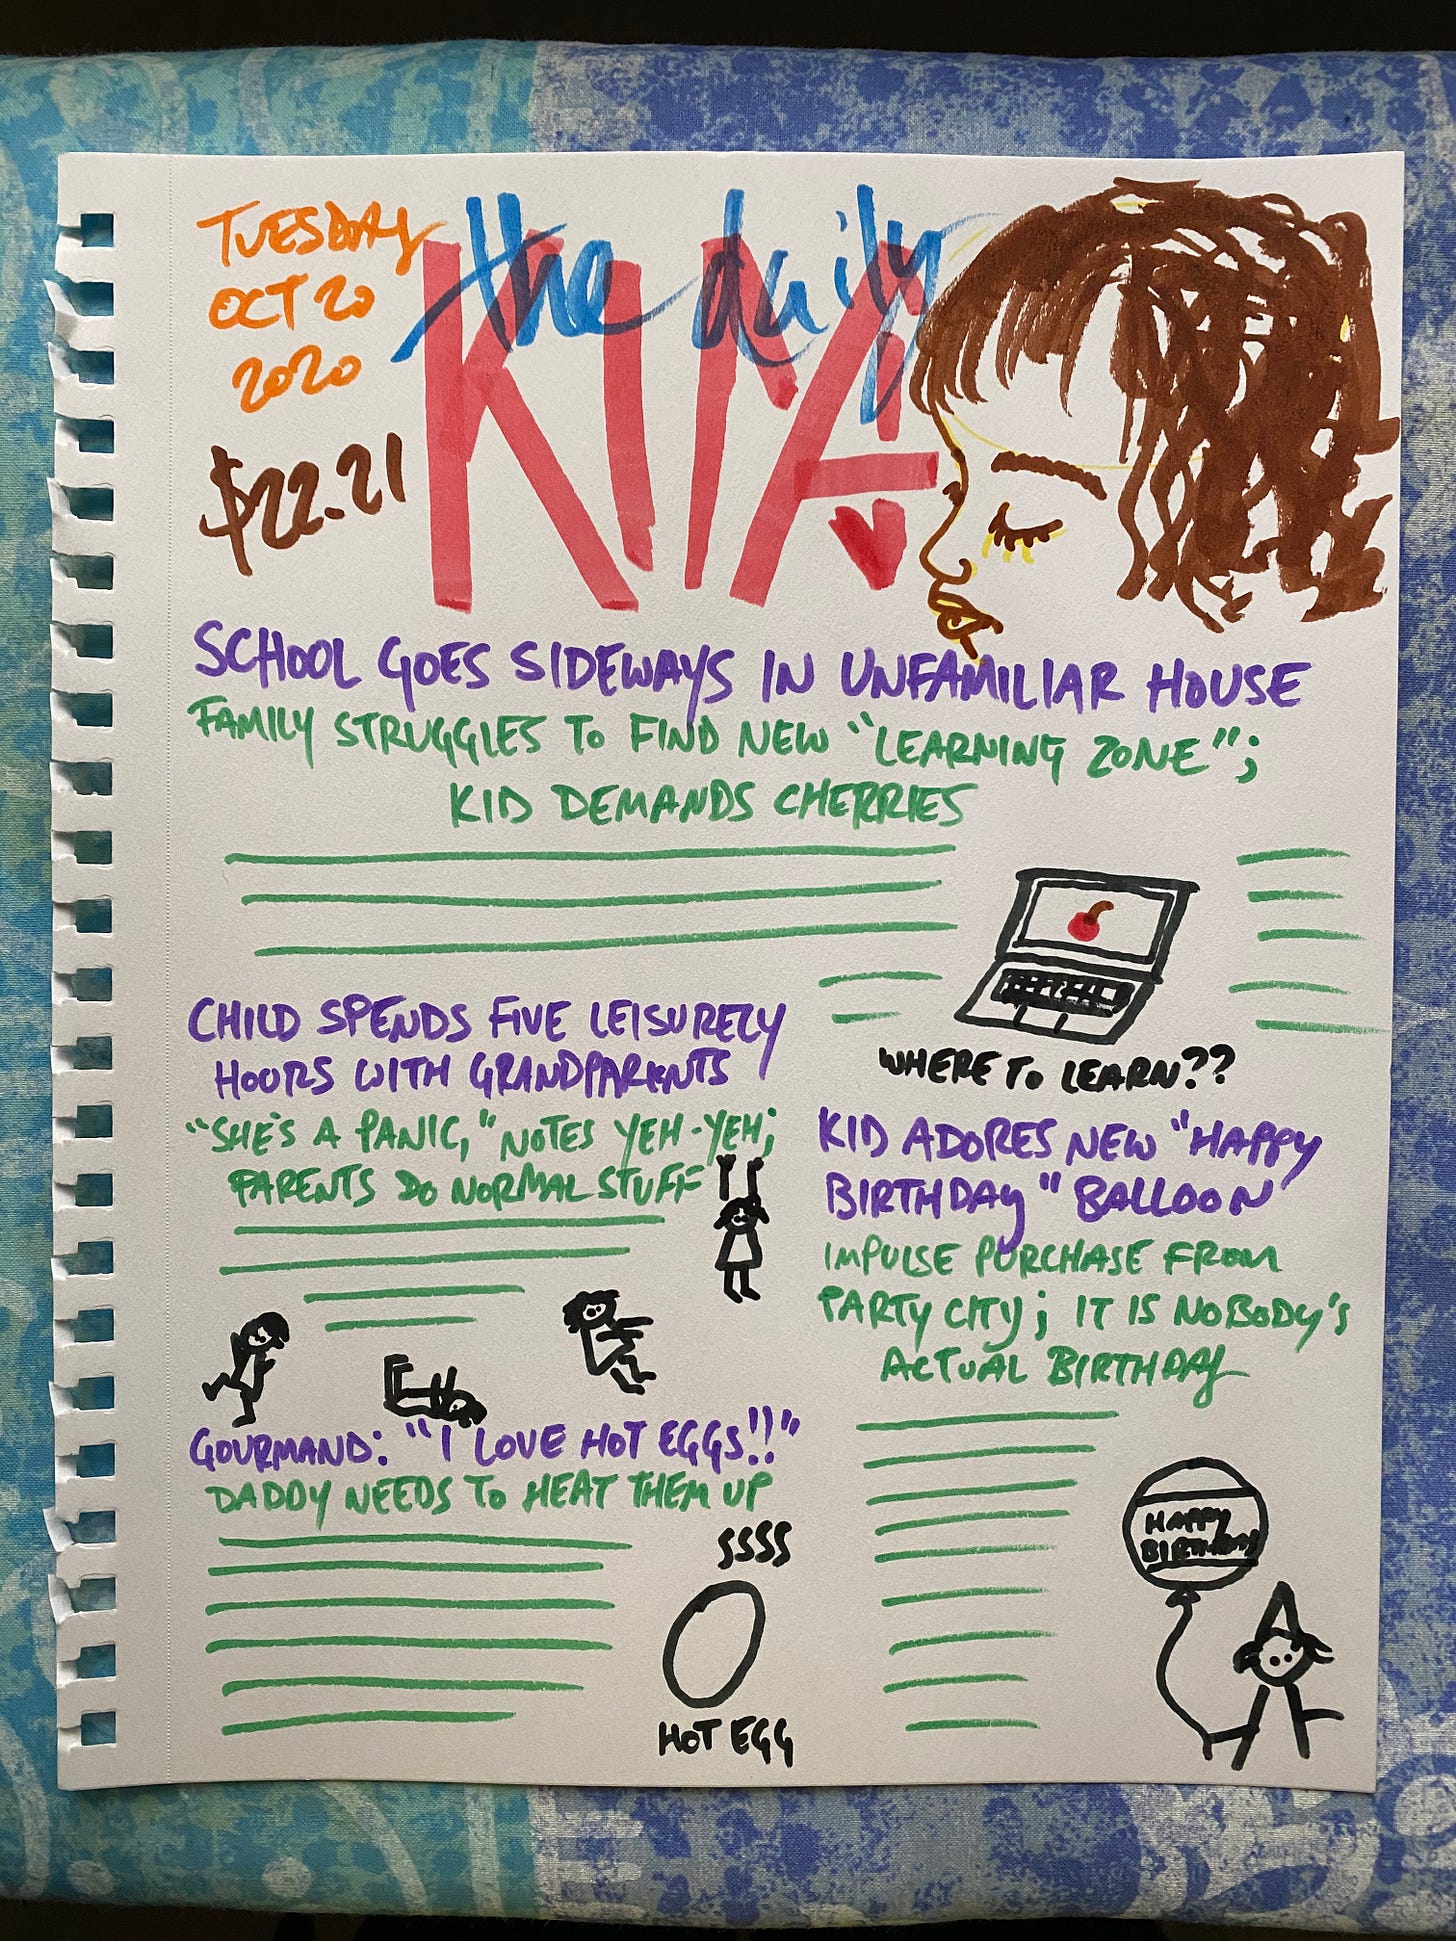 TUESDAY
OCT 20
2020
$22.21
the daily
KIMA
SCHOOL GOES SIDEWAYS IN UNFAMILIAR HOUSE
FAMILY STRUGGLES TO FIND NEW "LEARNING ZONE";
KID DEMANDS CHERRIES
WHERE TO LEARN??
CHILD SPENDS FIVE LEISURELY
HOURS WITH GRANDPARENTS
"SHE'S A PANIC," NOTES YEH-YEH;
PARENTS DO NORMAL STUFF
KID ADORES NEW "HAPPY
BIRTHDAY" BALLOON
IMPULSE PURCHASE FROM
PARTY CITY; IT IS NOBODY'S
ACTUAL BIRTHDAY
HAPPY
BIRTHDAY
GOURMAND: "I LOVE HOT EGGS!!"
DADDY NEEDS TO HEAT THEM UP
SSSS
HOT EGG